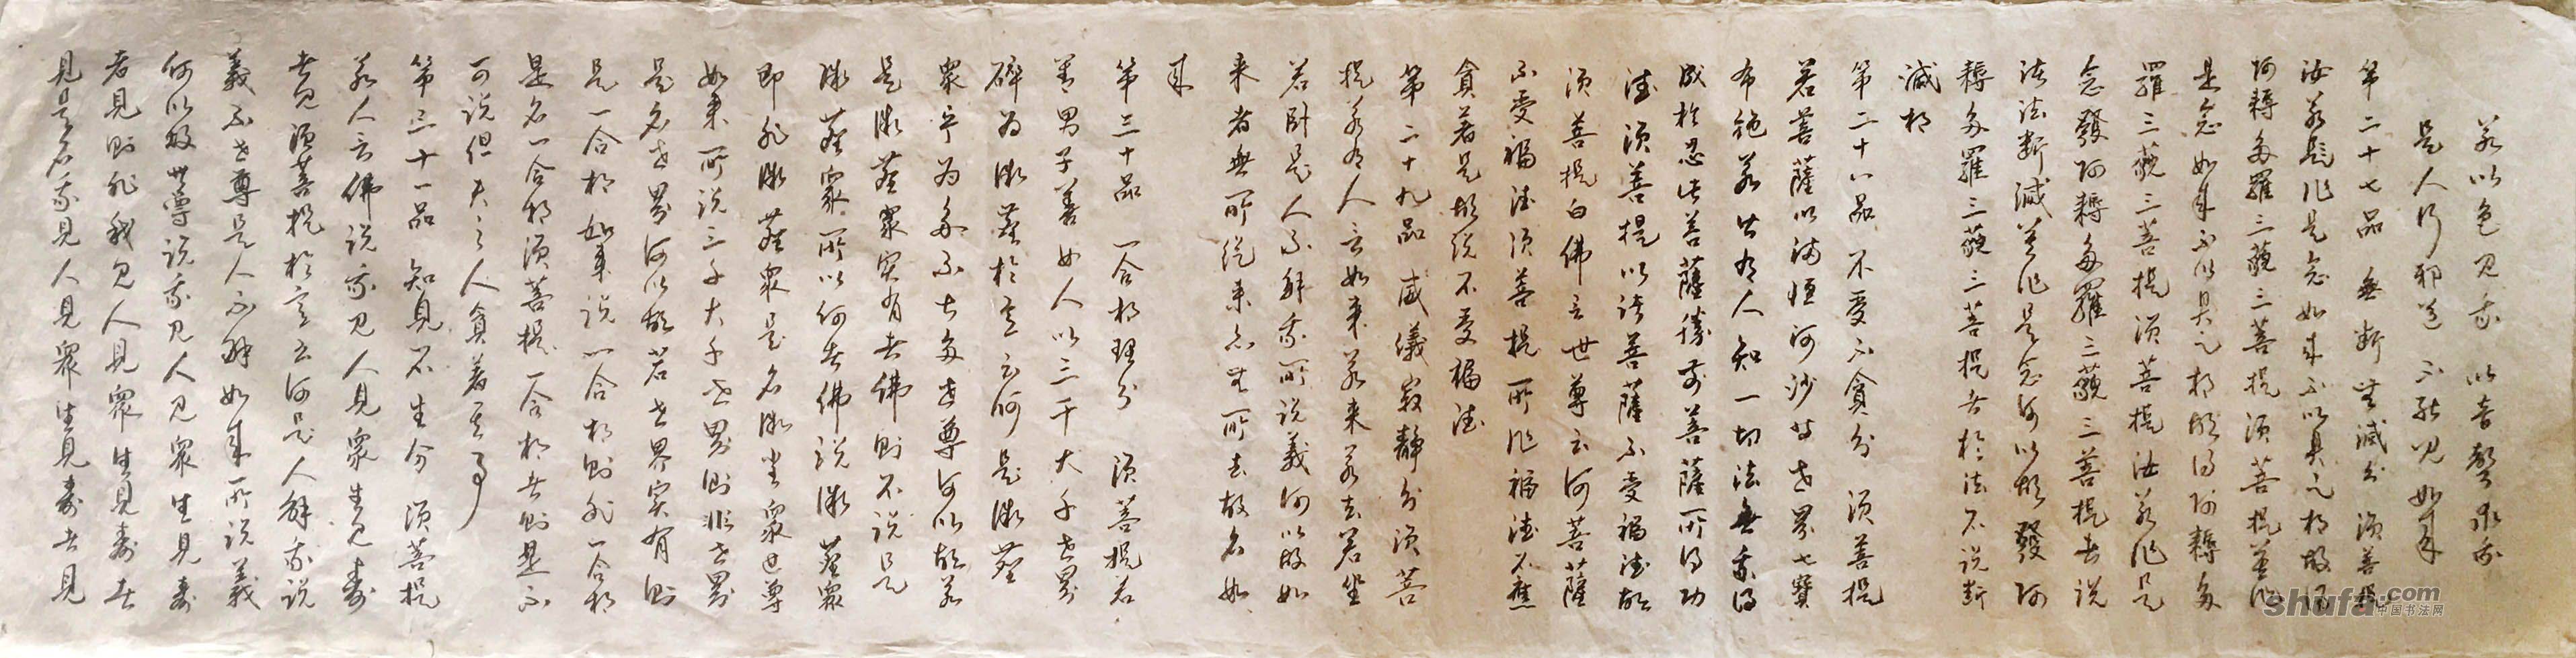 若以色见我 以音聲求我
是人行邪道 不能见如来
第二十七品 無断無滅分 须菩提
汝若是作是念如来不以具足相故得
阿耨多羅三藐三菩提须菩提莫作
是念如来不以具足相故得阿耨多
羅三藐三菩提须菩提汝若作是
念發阿耨多羅三藐三菩提者说
诸法断滅莫作是念何以故發阿
耨多羅三藐三菩提者於法不说断
滅相
第二十八品 不受不貪分 须菩提
若菩薩以满恒河沙等世界七寶
布施若復有人知一切法無我得
成於忍此菩薩勝前菩薩所得功
德须菩提以诸菩薩不受福德故
须菩提白佛言世尊云何菩薩
不受福德须菩提所作福德不應
貪著是故说不受福德
第二十九品 威儀寂静分须菩
提若有人言如来若来若去若坐
若卧是人不解我所说義何以故如
来者無所從来亦無所去故名如
来
第三十品 一合相理分 须菩提若
善男子善女人以三千大千世界
碎为微塵於意云何是微塵
衆宁为多不甚多世尊何以故若
是微塵衆实有者佛则不说是
微塵衆所以何者佛说微塵衆
即非微塵衆是名微塵衆世尊
如来所说三千大千世界则非世界
是名世界何以故若世界实有则
是一合相如来说一合相则非一合相
是名一合相须菩提一合相者则是不
可说但凡夫之人貪著其事
第三十一品 知見不生分 须菩提
若人言佛说我见人見衆生见壽
者见须菩提於意云何是人解我说
義不世尊是人不解如来所说義
何以故世尊说我见人见衆生見壽
者見则非我见人見衆生見壽者
見是名我見人見衆生見壽者見
shufa.com
中国书法网